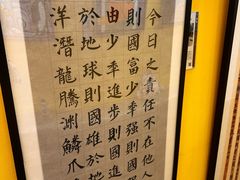 今日之責任不在他人
則國富少秊強則國強
由少秊進步則國進
於地球則國雄於地
洋潛龍騰淵鱗爪